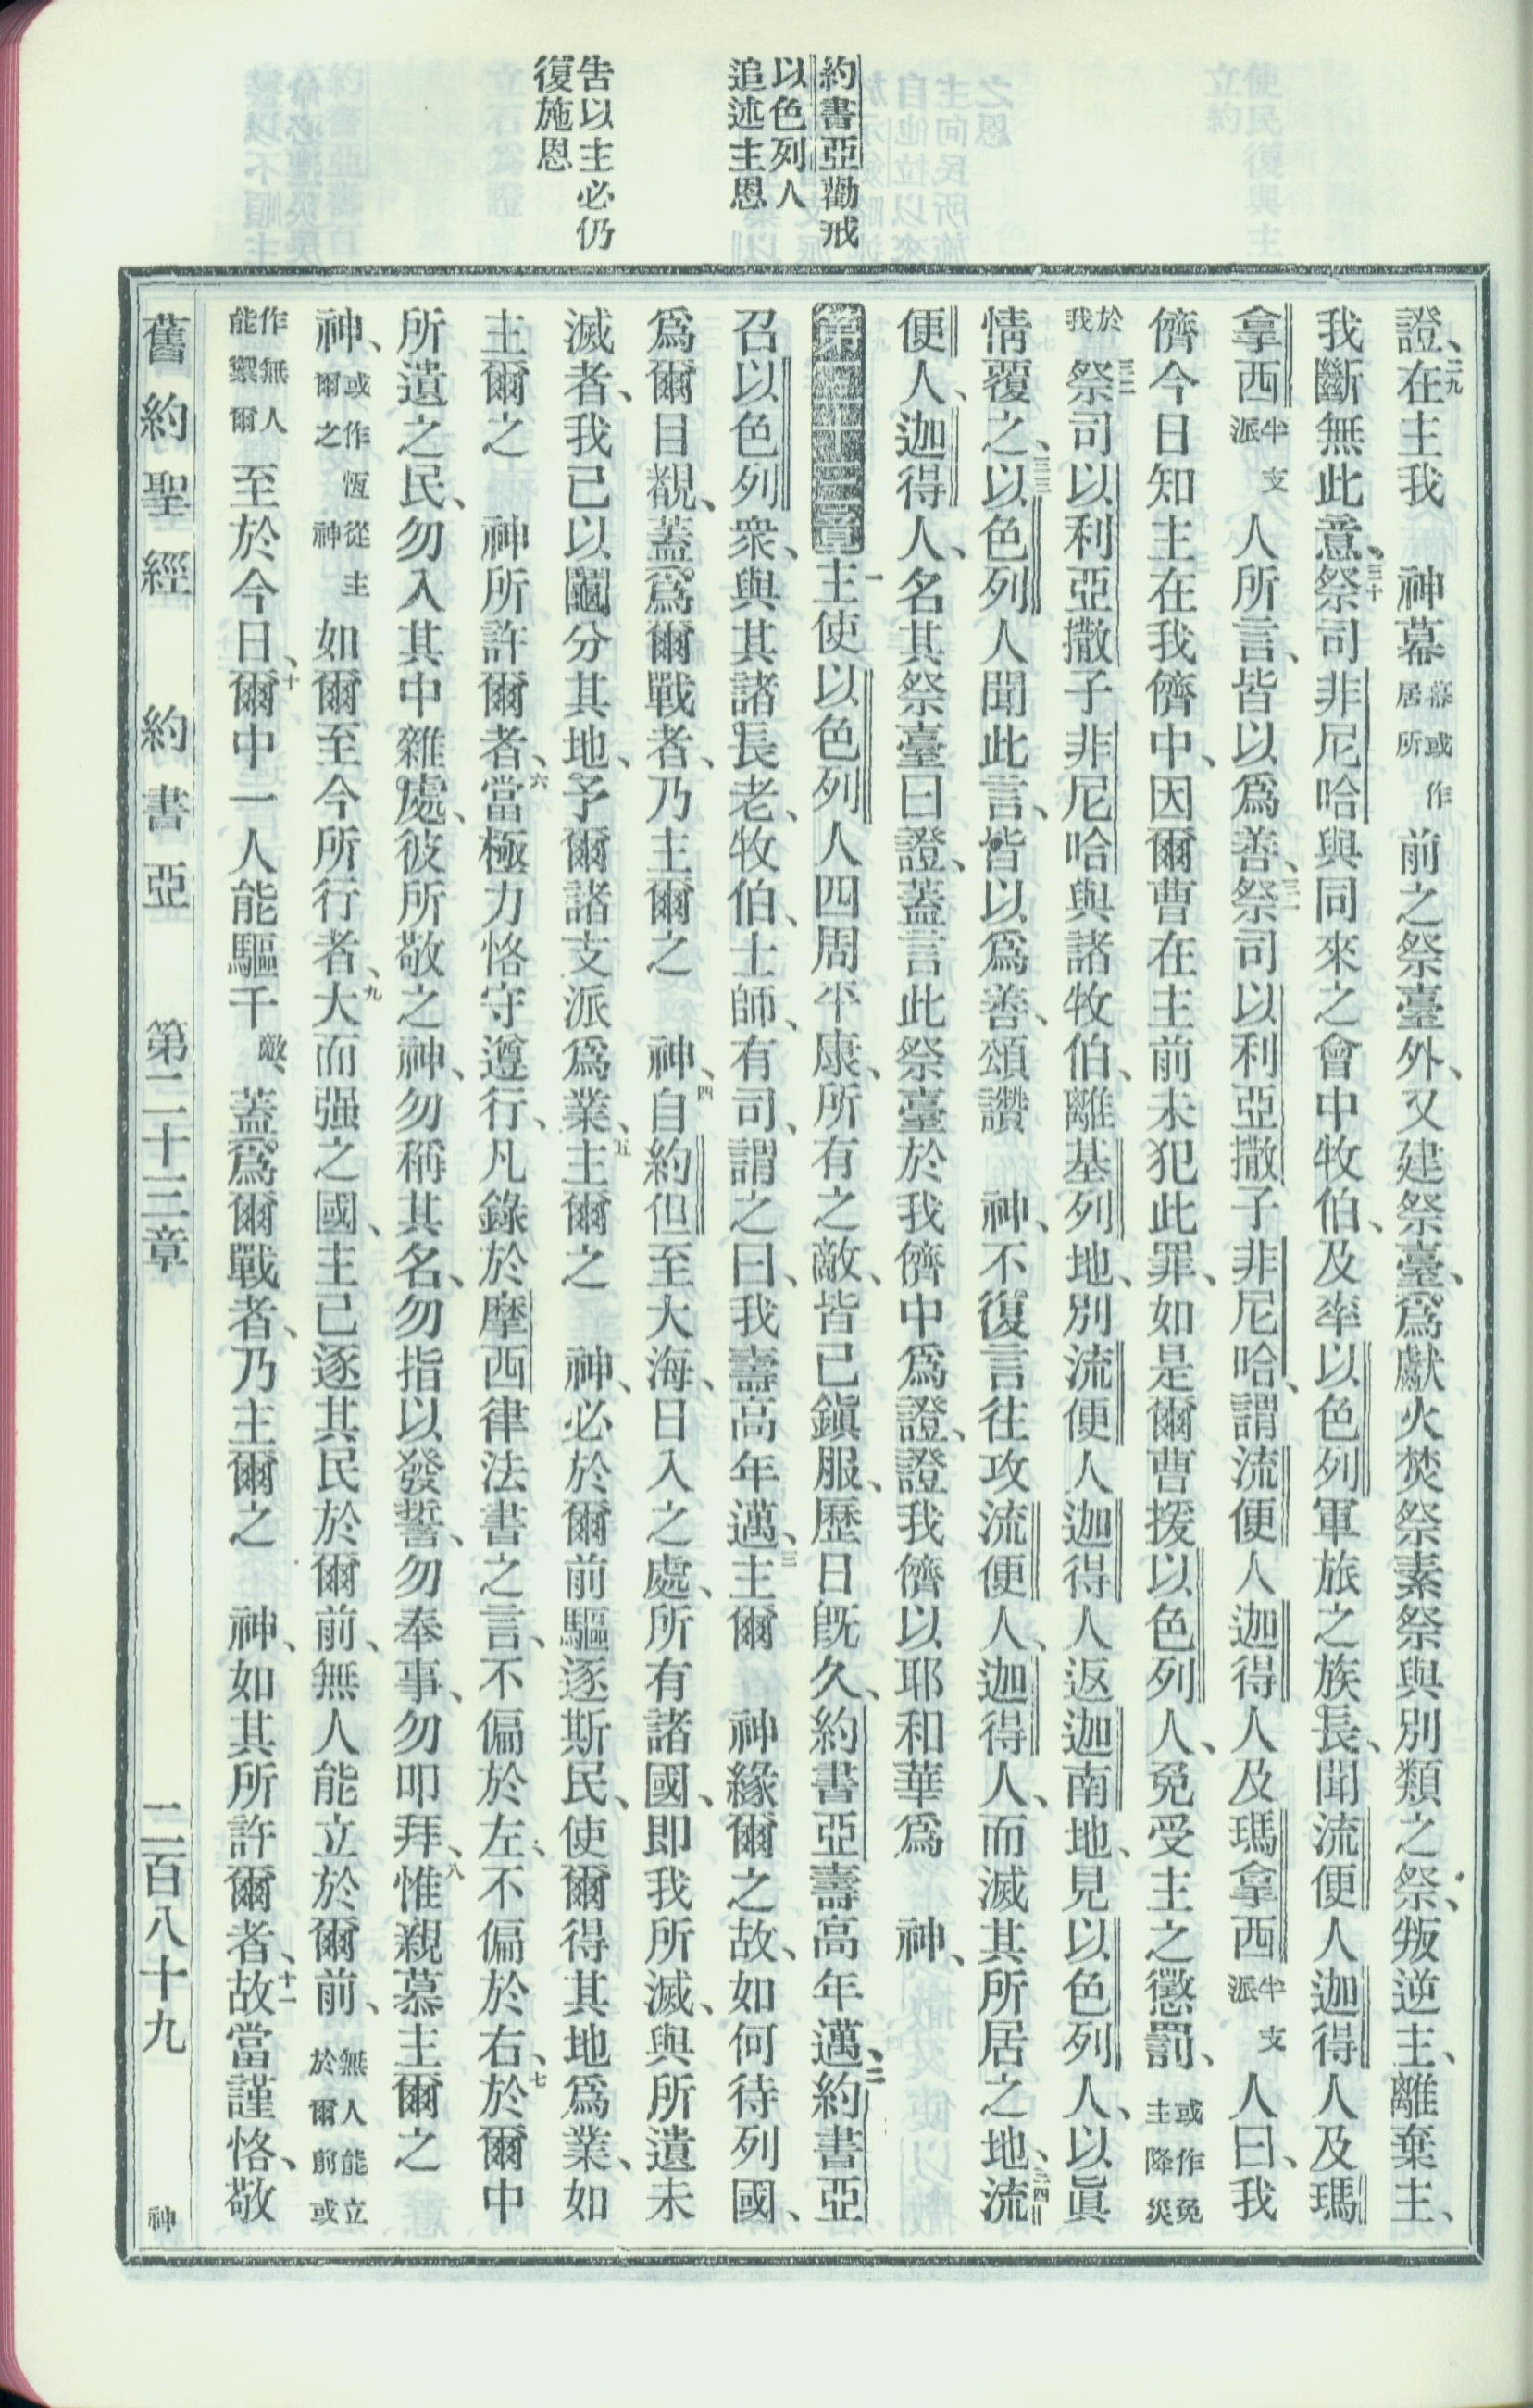 約書亞勸戒
以色列人
追述主恩
吿以主必仍
復施恩
證、二九在主我　神幕幕或作居所前之祭臺外、又建祭臺、爲獻火焚祭素祭與別類之祭、叛逆主、離棄主、
我斷無此意、三十祭司非尼哈與同來之會中牧伯、及率以色列軍旅之族長、聞流便人迦得人及瑪
拿西半支派人所言、皆以爲善、三一祭司以利亞撒子非尼哈、謂流便人迦得人及瑪拿西半支派人曰、我
儕今日知主在我儕中、因爾曹在主前未犯此罪、如是爾曹援以色列人、免受主之懲罰、或作免主降災
於我三二祭司以利亞撒子非尼哈與諸牧伯、離基列地、別流便人迦得人返迦南地、見以色列人、以眞
情覆之、三三以色列人聞此言、皆以爲善、頌讚　神、不復言往攻流便人、迦得人、而滅其所居之地、三四流
便人、迦得人、名其祭臺曰證、蓋言此祭臺於我儕中爲證、證我儕以耶和華爲　神、
第二十三章一主使以色列人四周平康、所有之敵、皆已鎭服、歷日旣久、約書亞壽高年邁、二約書亞
召以色列衆、與其諸長老、牧伯、士師、有司、謂之曰、我壽高年邁、三主爾　神緣爾之故、如何待列國、
爲爾目覩、蓋爲爾戰者、乃主爾之　神、四自約但至大海、日入之處、所有諸國、即我所滅、與所遺未
滅者、我已以鬮分其地、予爾諸支派爲業、五主爾之　神、必於爾前驅逐斯民、使爾得其地爲業、如
主爾之　神所許爾者、六當極力恪守遵行、凡錄於摩西律法書之言、不偏於左、不偏於右、七於爾中
所遺之民、勿入其中雜處、彼所敬之神、勿稱其名、勿指以發誓、勿奉事、勿叩拜、八惟親慕主爾之
神、或作恆從主爾之神如爾至今所行者、九大而强之國、主已逐其民於爾前、無人能立於爾前、無人能立於爾前或
作無人能禦爾至於今日、十爾中一人能驅千敵、蓋爲爾戰者、乃主爾之　神、如其所許爾者、十一故當謹恪、敬
舊約聖經　約書亞　第二十三章　二百八十九　神